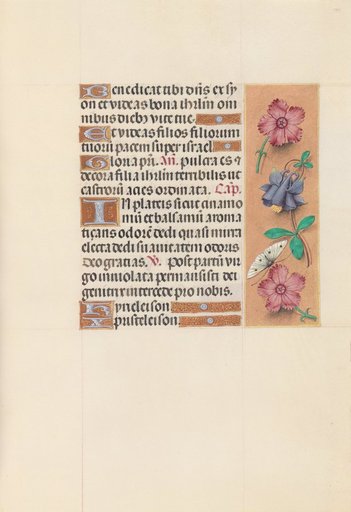 Benedicat tibi dn̄s ex sy
on et videas bona ihrl̄m om
nibus dieb9 vite tue.
Et videas filios filiorum
tuorū pacem super israel.
Gloria pr̄i. Añ. pulcra es et
decora filia ihrl̄m terribilis ut
castrorū acies ordinata. Cap.
In plateis sicut cinamo
mū et balsamū aroma
tizans odorē dedi quasi mirra
electa dedi suavitatem odoris
Deo gratias. V. Post partū vir
go inviolata permansisti dei
genitrix intercede pro nobis.
Kyrieleison.
Xp̄isteleison.